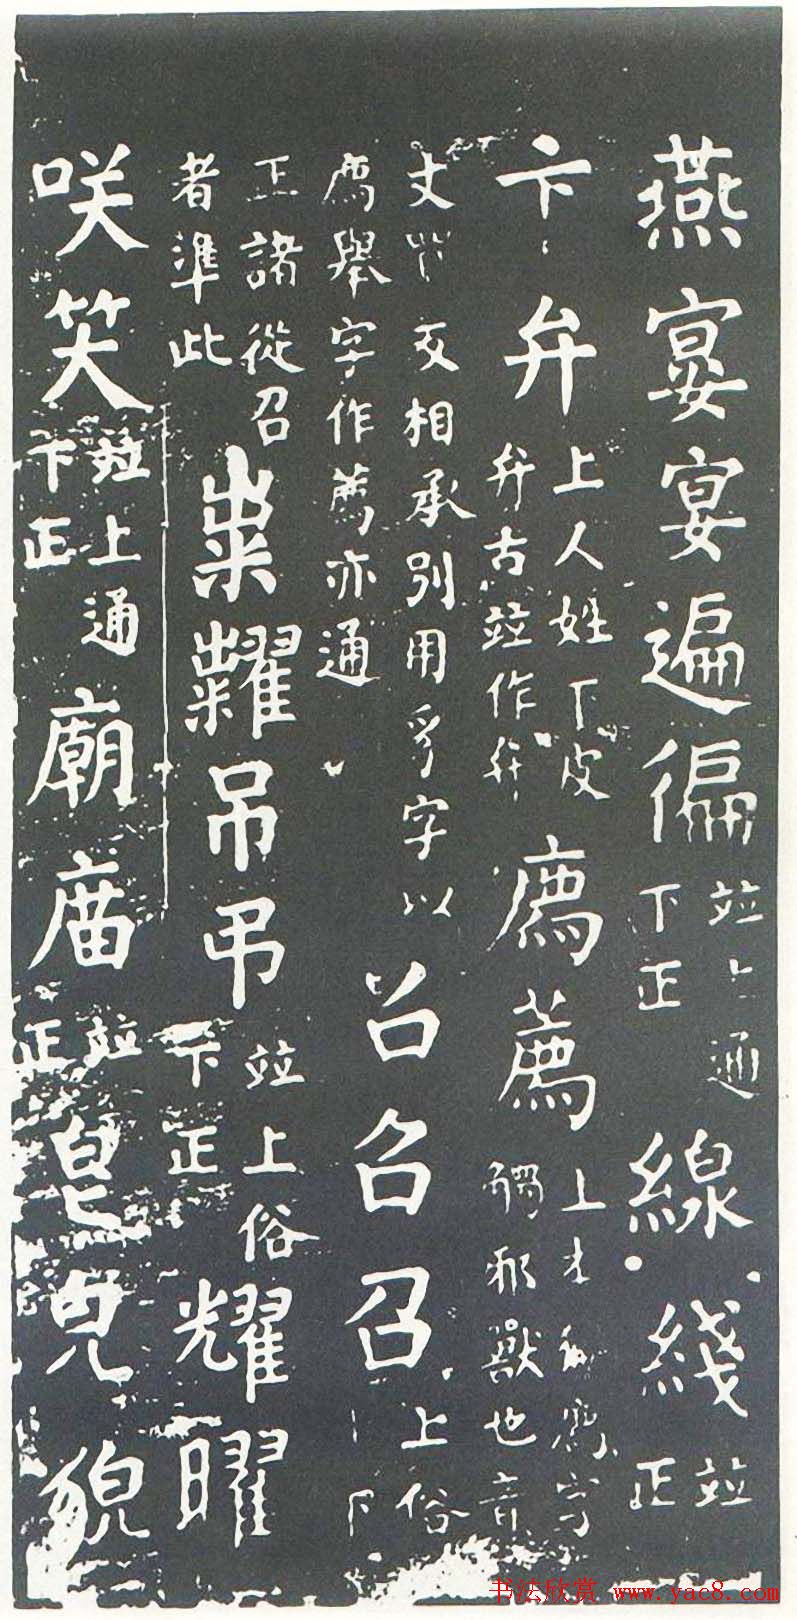 燕宴宴遍徧並上通下正線綫並正
卞弁上人姓下皮弁古並作弁廌薦上廌字觸邪獸也音
丈反相承別用豸字以廌舉字作薦亦通召召上俗下
正諸從召者準此粜糶吊弔並上俗下正耀曜
咲笑並上通下正廟庿並正皃貌
书法欣赏 www.yac8.com